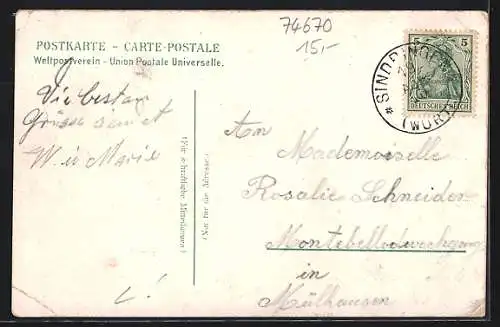 74670
15,-
POSTKARTE – CARTE-POSTALE
Weltpostverein - Union Postale Universelle.
5 5
DEUTSCHES REICH
* SINDRINGEN
(WÜRT
Die besten
Grüsse sendet
Marie
(Für schriftliche Mitteilungen)
(Nur für die Adresse)
An
Mademoiselle
Rosalie Schneider
Montebellodurchgang
in
Mülhausen